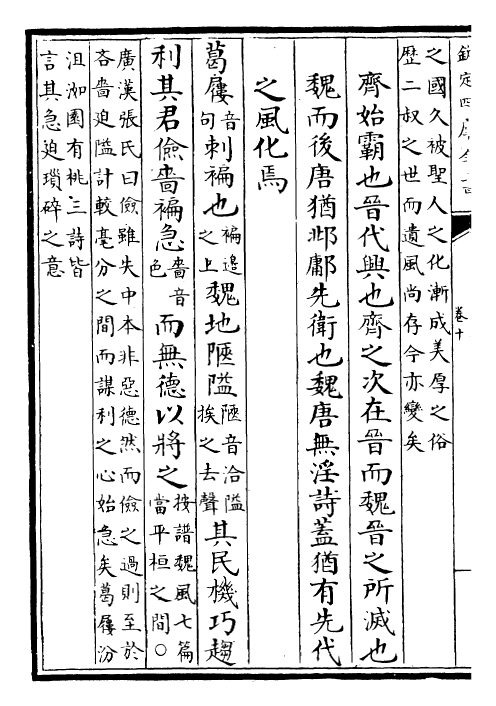 欽定四庫全書
卷十
之國久被聖人之化漸成美厚之俗
歷二叔之世而遺風尚存今亦變矣
齊始霸也晉代興也齊之次在晉而魏晉之所滅也
魏而後唐猶邶鄘先衛也魏唐無淫詩蓋猶有先代
之風化焉
葛屨音句刺褊也褊邉之上魏地陿隘陿音洽隘挨之去聲其民機巧趨
利其君儉嗇褊急嗇音色而無德以將之按譜魏風七篇當平桓之間○
廣漢張氏曰儉雖失中本非惡德然而儉之過則至於
吝嗇迫隘計較毫分之間而謀利之心始急矣葛屨汾
沮洳園有桃三詩皆
言其急迫瑣碎之意